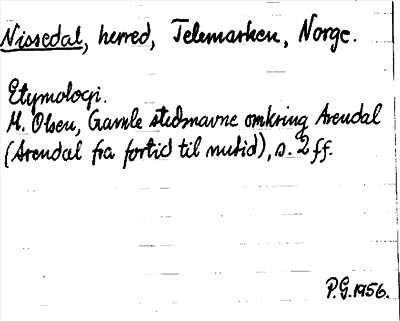 Nissedal, herred, Telemarken, Norge.
Etymologi.
M. Olsen, Gamle stednavne omkring Arendal
(Arendal fra fortid til nutid), s. 2 ff.
P.G. 1956.